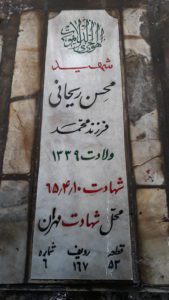 هو الحی الذی لا یموت
شهید
محسن ریحانی
فرزند محمد
ولادت ۱۳۳۹
شهادت ۶۵/۴/۱۰
محل شهادت مهران
قطعه ردیف شماره
۵۳ ۱۶۷ ۶